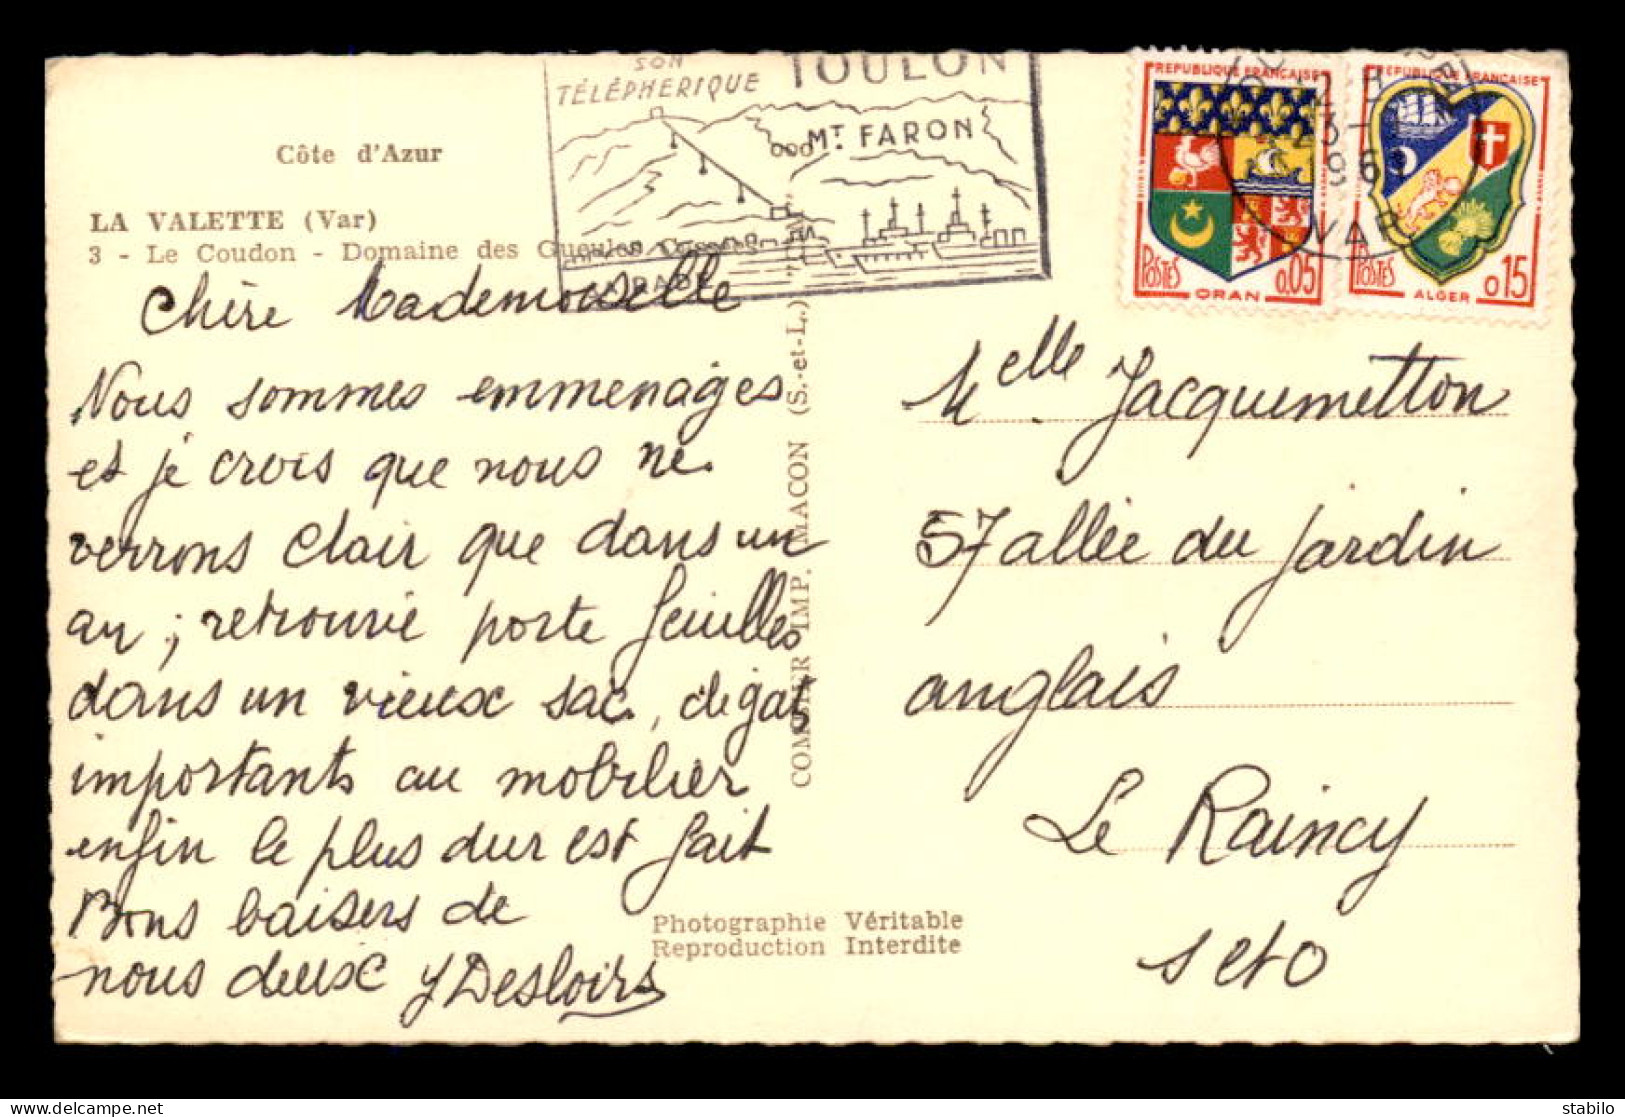 Côte d'Azur
LA VALETTE (Var)
3 - Le Coudon - Domaine des Gueules
SON
TÉLÉPHERIQUE
TOULON
MT FARON
RADE
REPUBLIQUE FRANÇAISE
POSTES
ORAN
0,05
REPUBLIQUE FRANÇAISE
POSTES
ALGER
0,15
VAR
Chère Mademoiselle
Nous sommes emmenages
et je crois que nous ne
verrons clair que dans un
an ; retrouvé porte feuilles
dans un vieux sac, degats
importants au mobilier
enfin le plus dur est fait
Bons baisers de
nous deux Y Desloirs
COMBIER IMP. MACON (S.-et-L.)
Photographie Véritable
Reproduction Interdite
Melle Jacquemetton
57 allée du jardin
anglais
Le Raincy
S et O
delcampe.net
stabilo